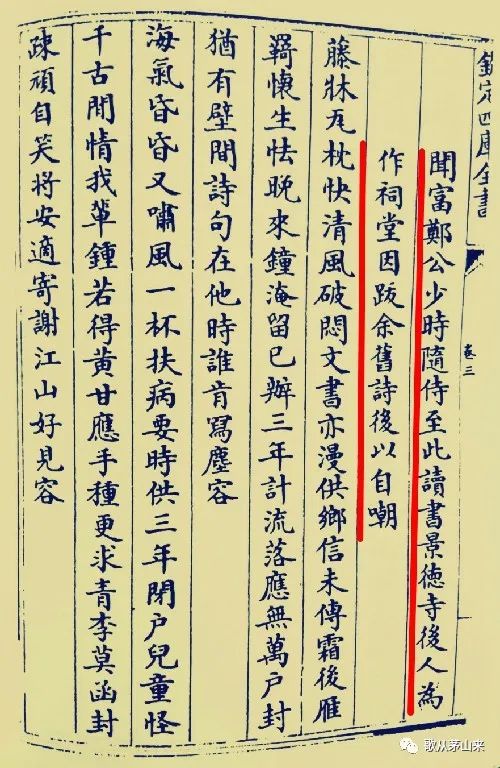 欽定四庫全書
卷三
聞富鄭公少時隨侍至此讀書景德寺後人為
作祠堂因跋余舊詩後以自嘲
藤牀瓦枕快清風破悶文書亦漫供鄉信未傳霜後雁
羇懷生怯晚來鐘淹留已辦三年計流落應無萬户封
猶有壁間詩句在他時誰肯寫塵容
海氣昏昏又嘯風一杯扶病要時供三年閉户兒童怪
千古閒情我輩鍾若得黃甘應手種更求青李莫函封
疎頑自笑將安適寄謝江山好見容
歌从茅山来